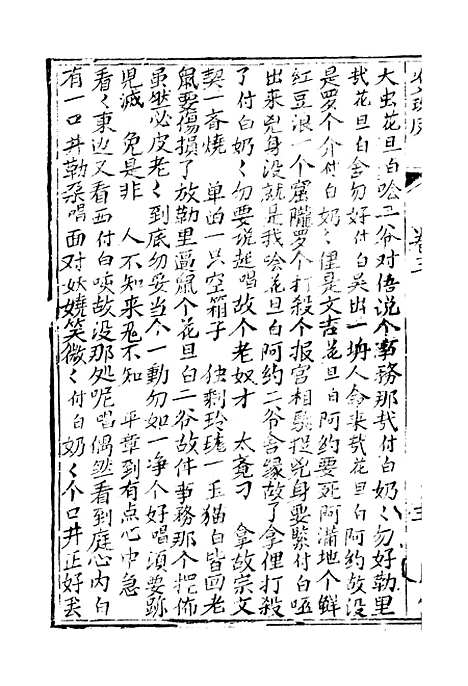 大虫花旦白唅二爷对倷说个事務那哉付白奶〻勿好勒里
哉花旦白舍勿好付白吴出一坍人命来哉花旦白阿約故没
是罗个介付白奶〻俚是文吉花旦白阿約要死阿满地个鲜
红豆浪一个窟朧罗个打殺个报官相驗捉兇身要緊付白哑
出来兇身没就是我唅花旦白阿約二爷舍缘故了拿俚打殺
了付白奶〻勿要说起唱故个老奴才 太 刁 拿故宗文
契一斉燒 单留一只空箱子 独剩玲瓏一玉猫白皆回老
鼠要傷損了放勒里逼鼠个花旦白二爷故件事務那个把佈
虽然必皮老〻到底勿妥当个一動勿如一净个好唱須要跡
児滅 免是非 人不知来鬼不知 平章到有点心中急
看〻東边又看西付白唉故没那处呢唱偶然看到庭心内白
有一口井勒朶唱面对妖嬈笑微〻付白奶〻个口井正好丟
卷三